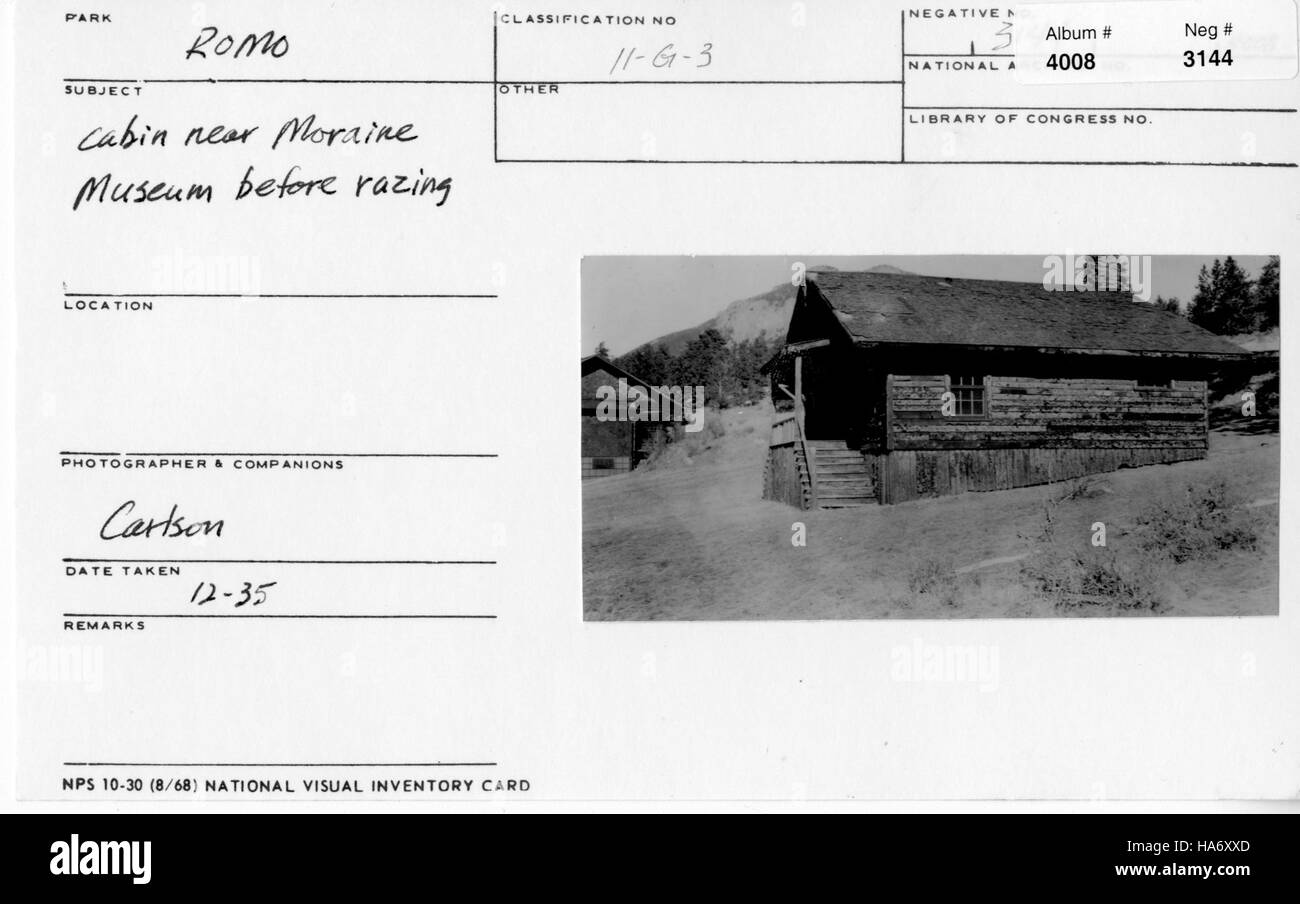 PARK
ROMO
CLASSIFICATION NO
11-G-3
NEGATIVE
3
Album #
Neg #
4008
3144
NATIONAL A
SUBJECT
OTHER
LIBRARY OF CONGRESS NO.
cabin near Moraine
Museum before razing
LOCATION
PHOTOGRAPHER & COMPANIONS
Carlson
DATE TAKEN
12-35
REMARKS
NPS 10-30 (8/68) NATIONAL VISUAL INVENTORY CARD
alamy
Image ID: HA6XXD
www.alamy.com